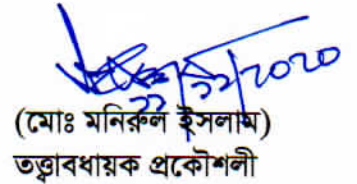 ২২/১১/২০২০
(মোঃ মনিরুল ইসলাম)
তত্ত্বাবধায়ক প্রকৌশলী